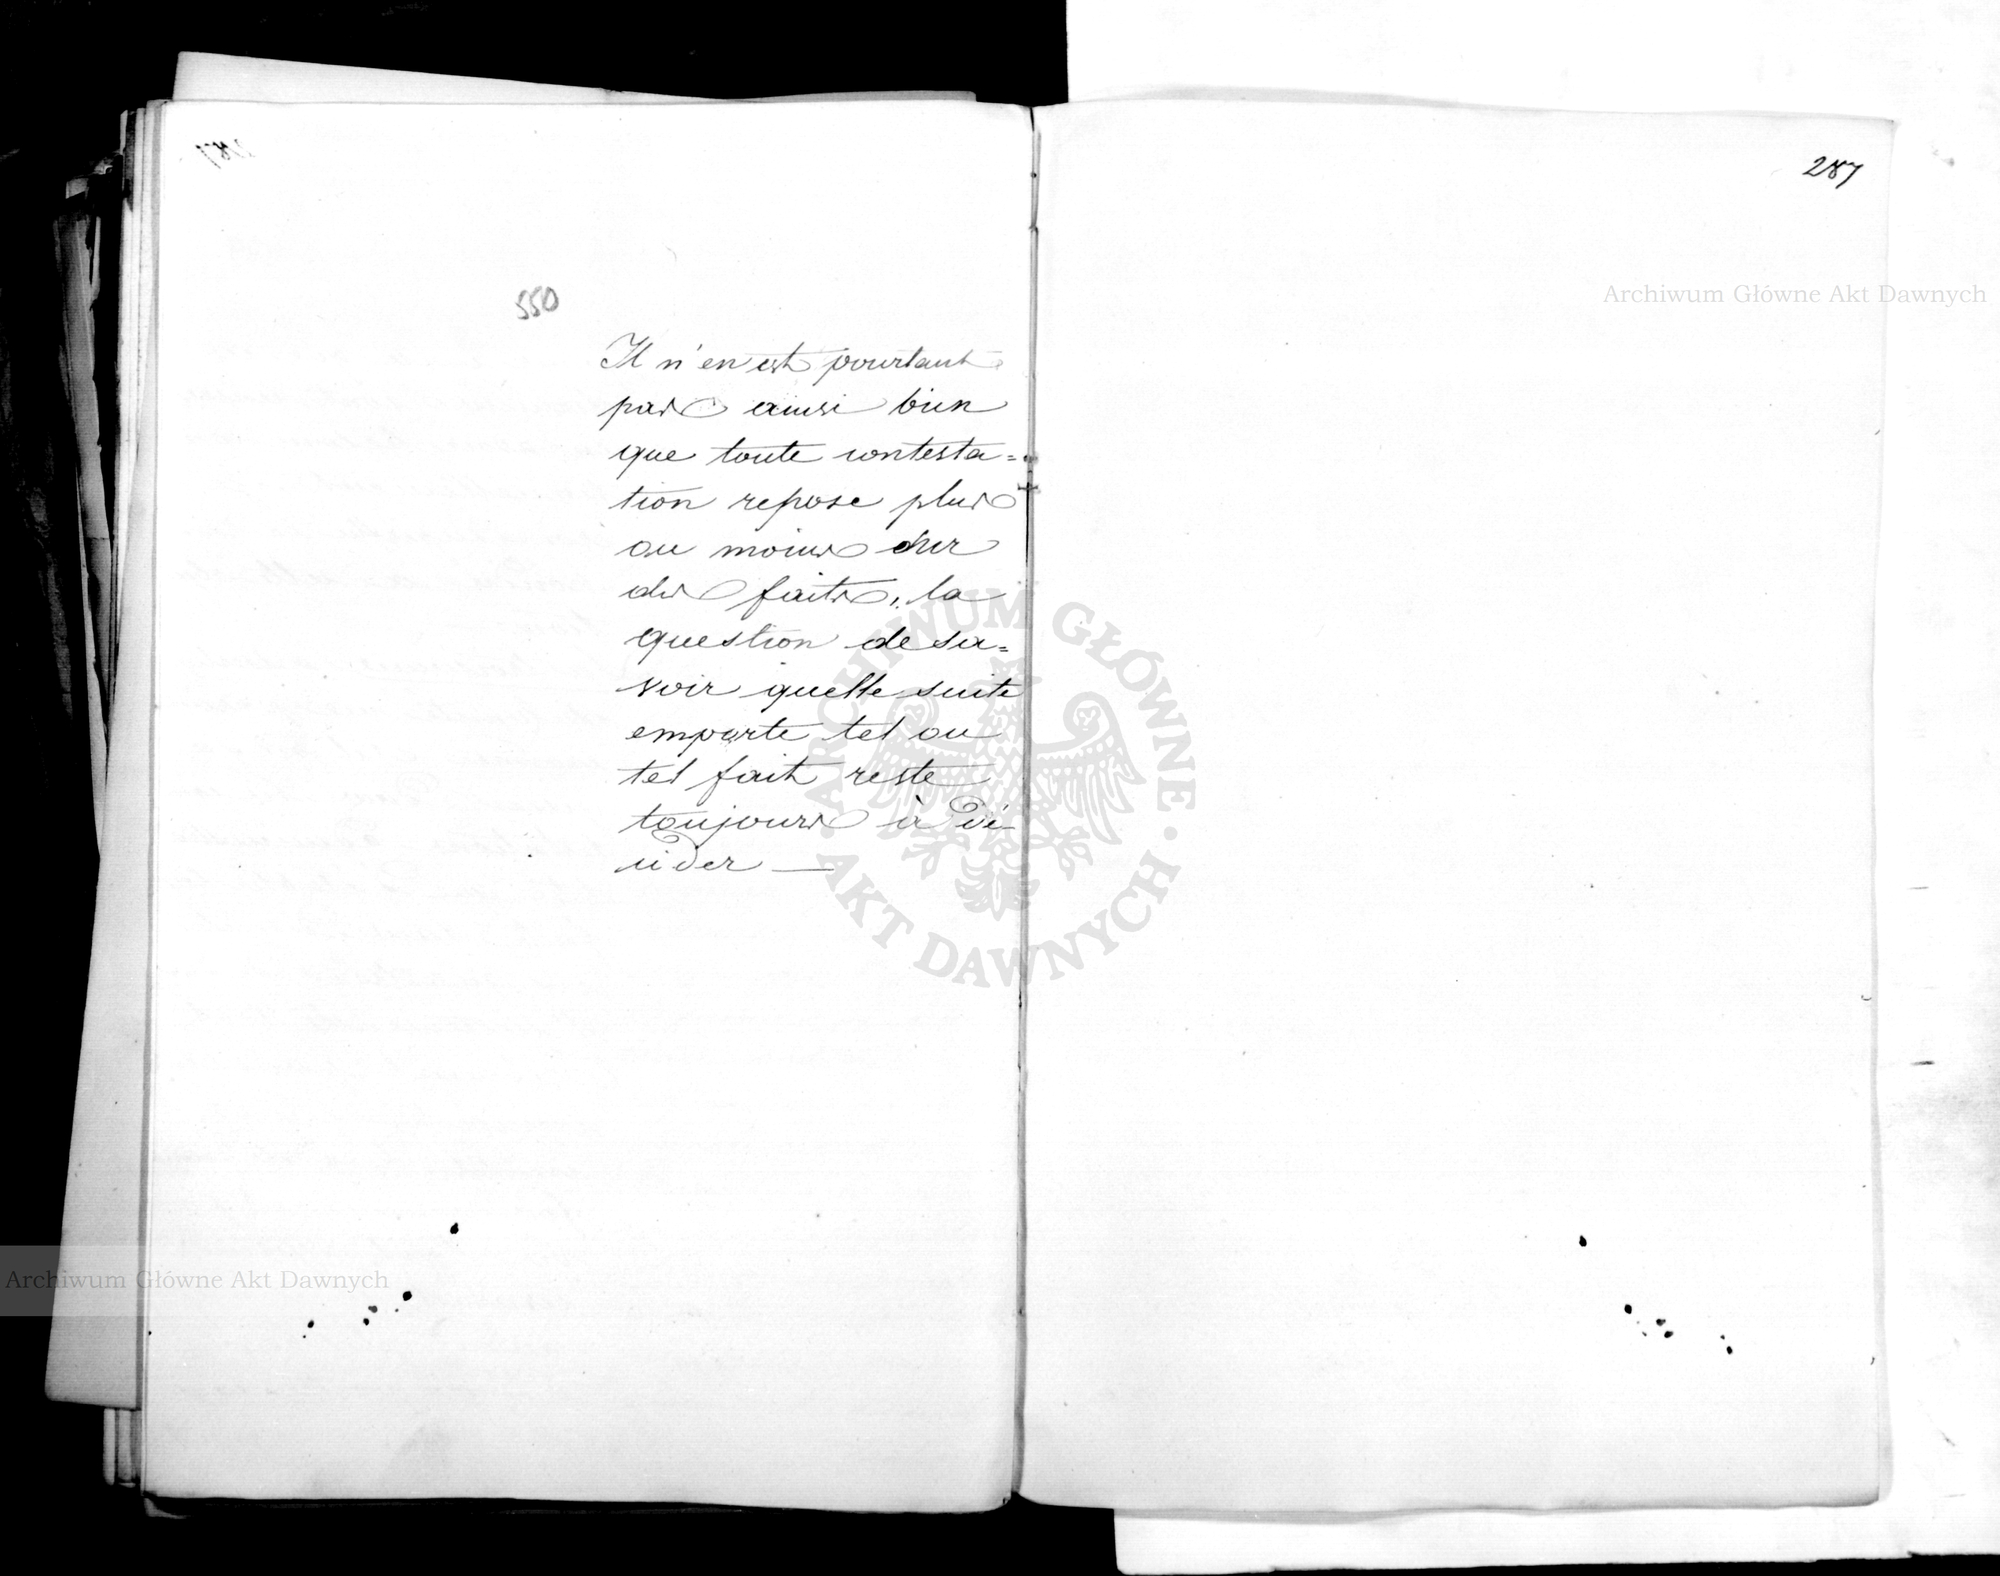 550
Il n'en est pourtant
pas ainsi bien
que toute contesta=
tion repose plus
ou moins sur
des faits, la
question de sa=
voir quelle suite
emporte tel ou
tel fait reste
toujours à dé-
cider —
287
Archiwum Główne Akt Dawnych
ARCHIWUM GŁÓWNE
AKT DAWNYCH
Archiwum Główne Akt Dawnych